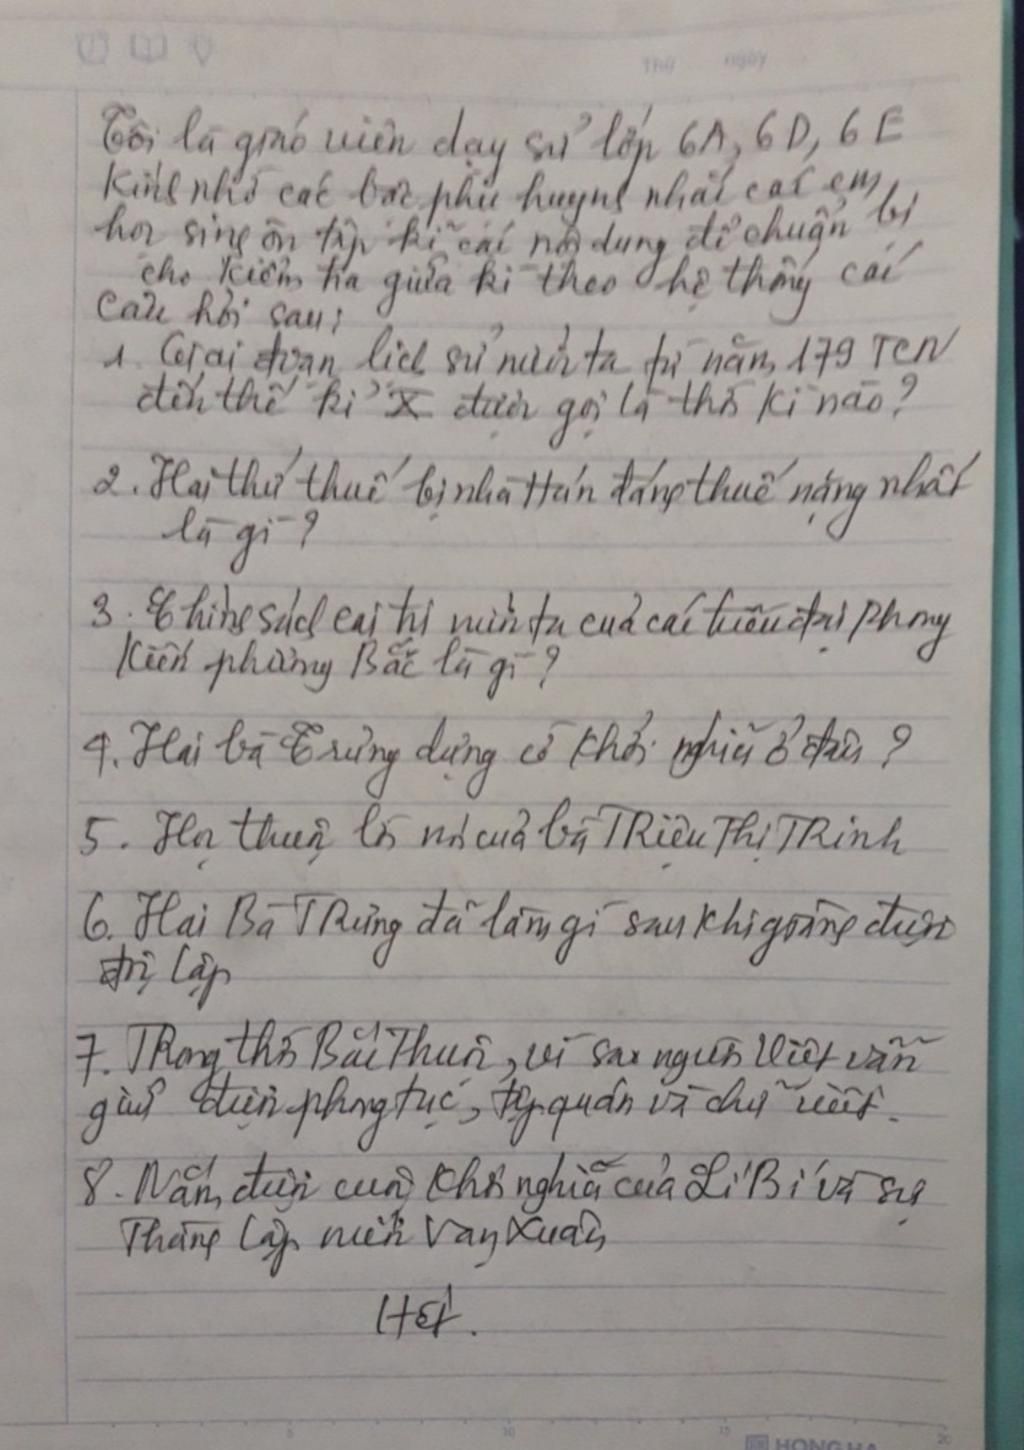 Thứ ngày
Tôi là giáo viên dạy sử lớp 6A, 6D, 6E
Kính nhờ các bậc phụ huynh nhắc các em
học sinh ôn tập kĩ các nội dung để chuẩn bị
cho kiểm tra giữa kì theo hệ thống các
câu hỏi sau:
1. Giai đoạn lịch sử nước ta từ năm 179 TCN
đến thế kỉ X được gọi là thời kì nào?
2. Hai thứ thuế bị nhà Hán đánh thuế nặng nhất
là gì?
3. Chính sách cai trị nước ta của các triều đại phong
kiến phương Bắc là gì?
4. Hai bà Trưng dựng cờ khởi nghĩa ở đâu?
5. Học thuộc lời nói của bà TRiệu Thị TRinh
6. Hai Bà TRưng đã làm gì sau khi giành được
độc lập
7. TRong thời Bắc Thuộc, vì sao người Việt vẫn
giữ được phong tục, tập quán và chữ viết.
8. Nắm được cuộc khởi nghĩa của Lí Bí và sự
Thành lập nước Vạn Xuân
Hết.
5 10 15 20
HONG HA